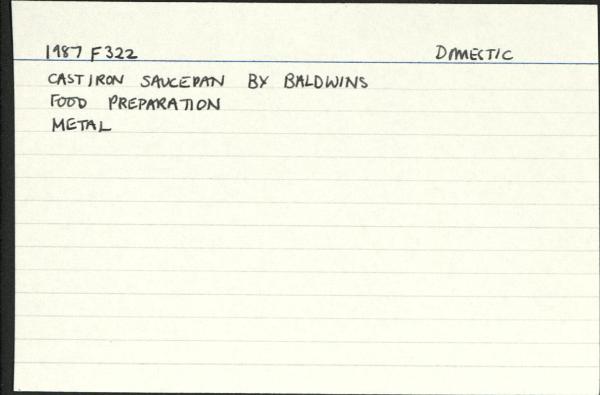 1987 F322 DOMESTIC
CAST IRON SAUCEPAN BY BALDWINS
FOOD PREPARATION
METAL